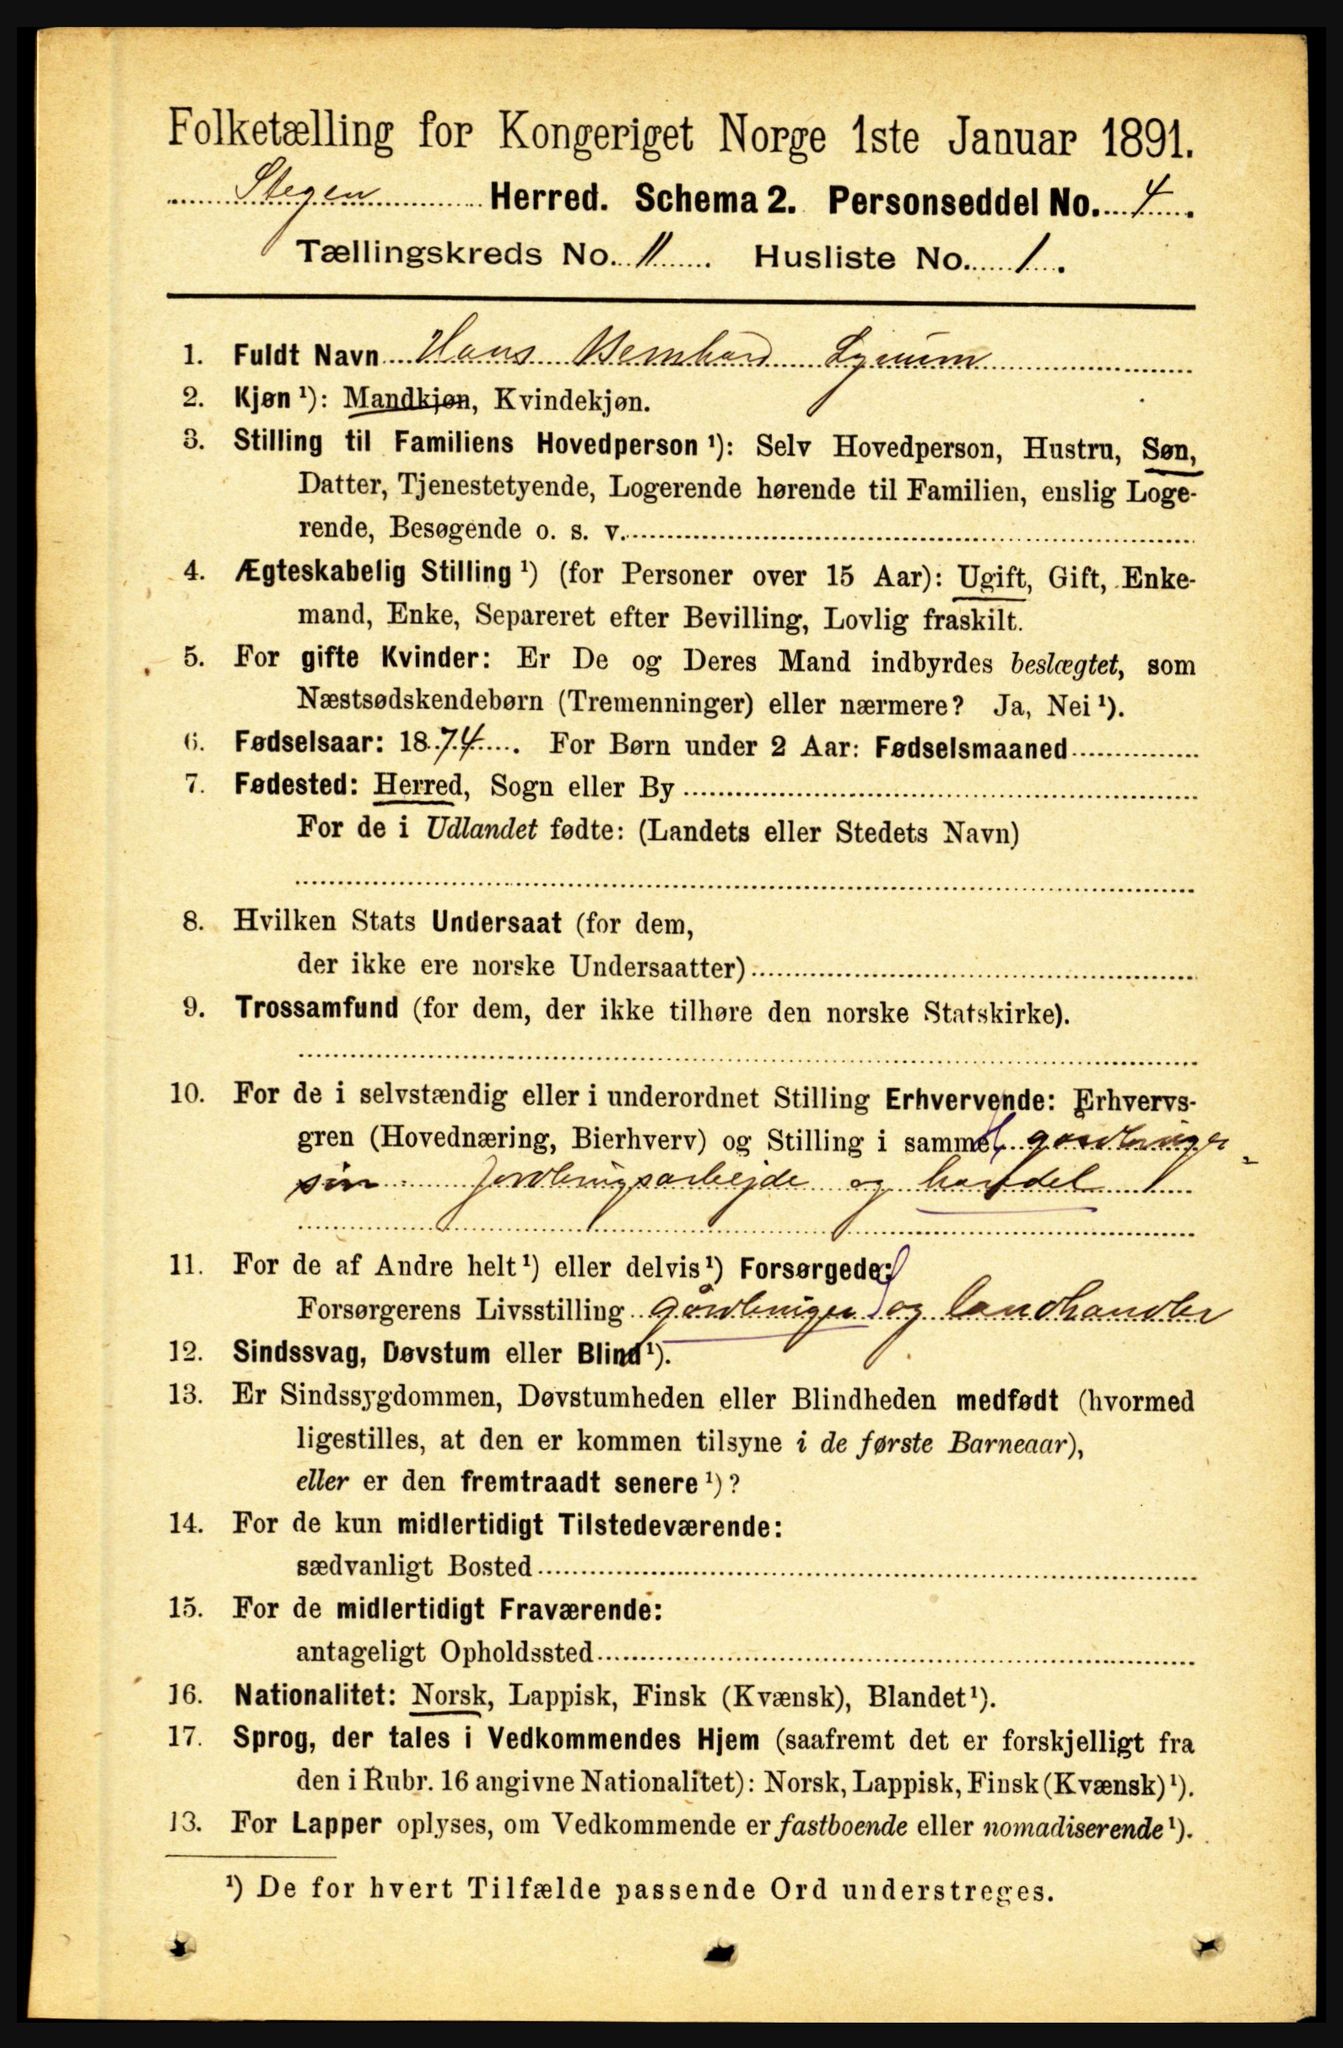 Folketælling for Kongeriget Norge 1ste Januar 1891.
Stegen Herred. Schema 2. Personseddel No. 4.
Tællingskreds No. 11. Husliste No. 1.
1. Fuldt Navn Hans Bernhard
2. Kjøn ¹): Mandkjøn, Kvindekjøn.
3. Stilling til Familiens Hovedperson ¹): Selv Hovedperson, Hustru, Søn,
Datter, Tjenestetyende, Logerende hørende til Familien, enslig Loge-
rende, Besøgende o. s. v.
4. Ægteskabelig Stilling ¹) (for Personer over 15 Aar): Ugift, Gift, Enke-
mand, Enke, Separeret efter Bevilling, Lovlig fraskilt.
5. For gifte Kvinder: Er De og Deres Mand indbyrdes beslægtet, som
Næstsødskendebørn (Tremenninger) eller nærmere? Ja, Nei ¹).
6. Fødselsaar: 1874. For Børn under 2 Aar: Fødselsmaaned
7. Fødested: Herred, Sogn eller By
For de i Udlandet fødte: (Landets eller Stedets Navn)
8. Hvilken Stats Undersaat (for dem,
der ikke ere norske Undersaatter)
9. Trossamfund (for dem, der ikke tilhøre den norske Statskirke).
10. For de i selvstændig eller i underordnet Stilling Erhvervende: Erhvervs-
gren (Hovednæring, Bierhverv) og Stilling i samme,
jordbrugsarbejde og handel
11. For de af Andre helt ¹) eller delvis ¹) Forsørgede:
Forsørgerens Livsstilling gårdbruger og landhandler
12. Sindssvag, Døvstum eller Blind ¹).
13. Er Sindssygdommen, Døvstumheden eller Blindheden medfødt (hvormed
ligestilles, at den er kommen tilsyne i de første Barneaar),
eller er den fremtraadt senere ¹)?
14. For de kun midlertidigt Tilstedeværende:
sædvanligt Bosted
15. For de midlertidigt Fraværende:
antageligt Opholdssted
16. Nationalitet: Norsk, Lappisk, Finsk (Kvænsk), Blandet ¹).
17. Sprog, der tales i Vedkommendes Hjem (saafremt det er forskjelligt fra
den i Rubr. 16 angivne Nationalitet): Norsk, Lappisk, Finsk (Kvænsk) ¹).
13. For Lapper oplyses, om Vedkommende er fastboende eller nomadiserende ¹).
¹) De for hvert Tilfælde passende Ord understreges.